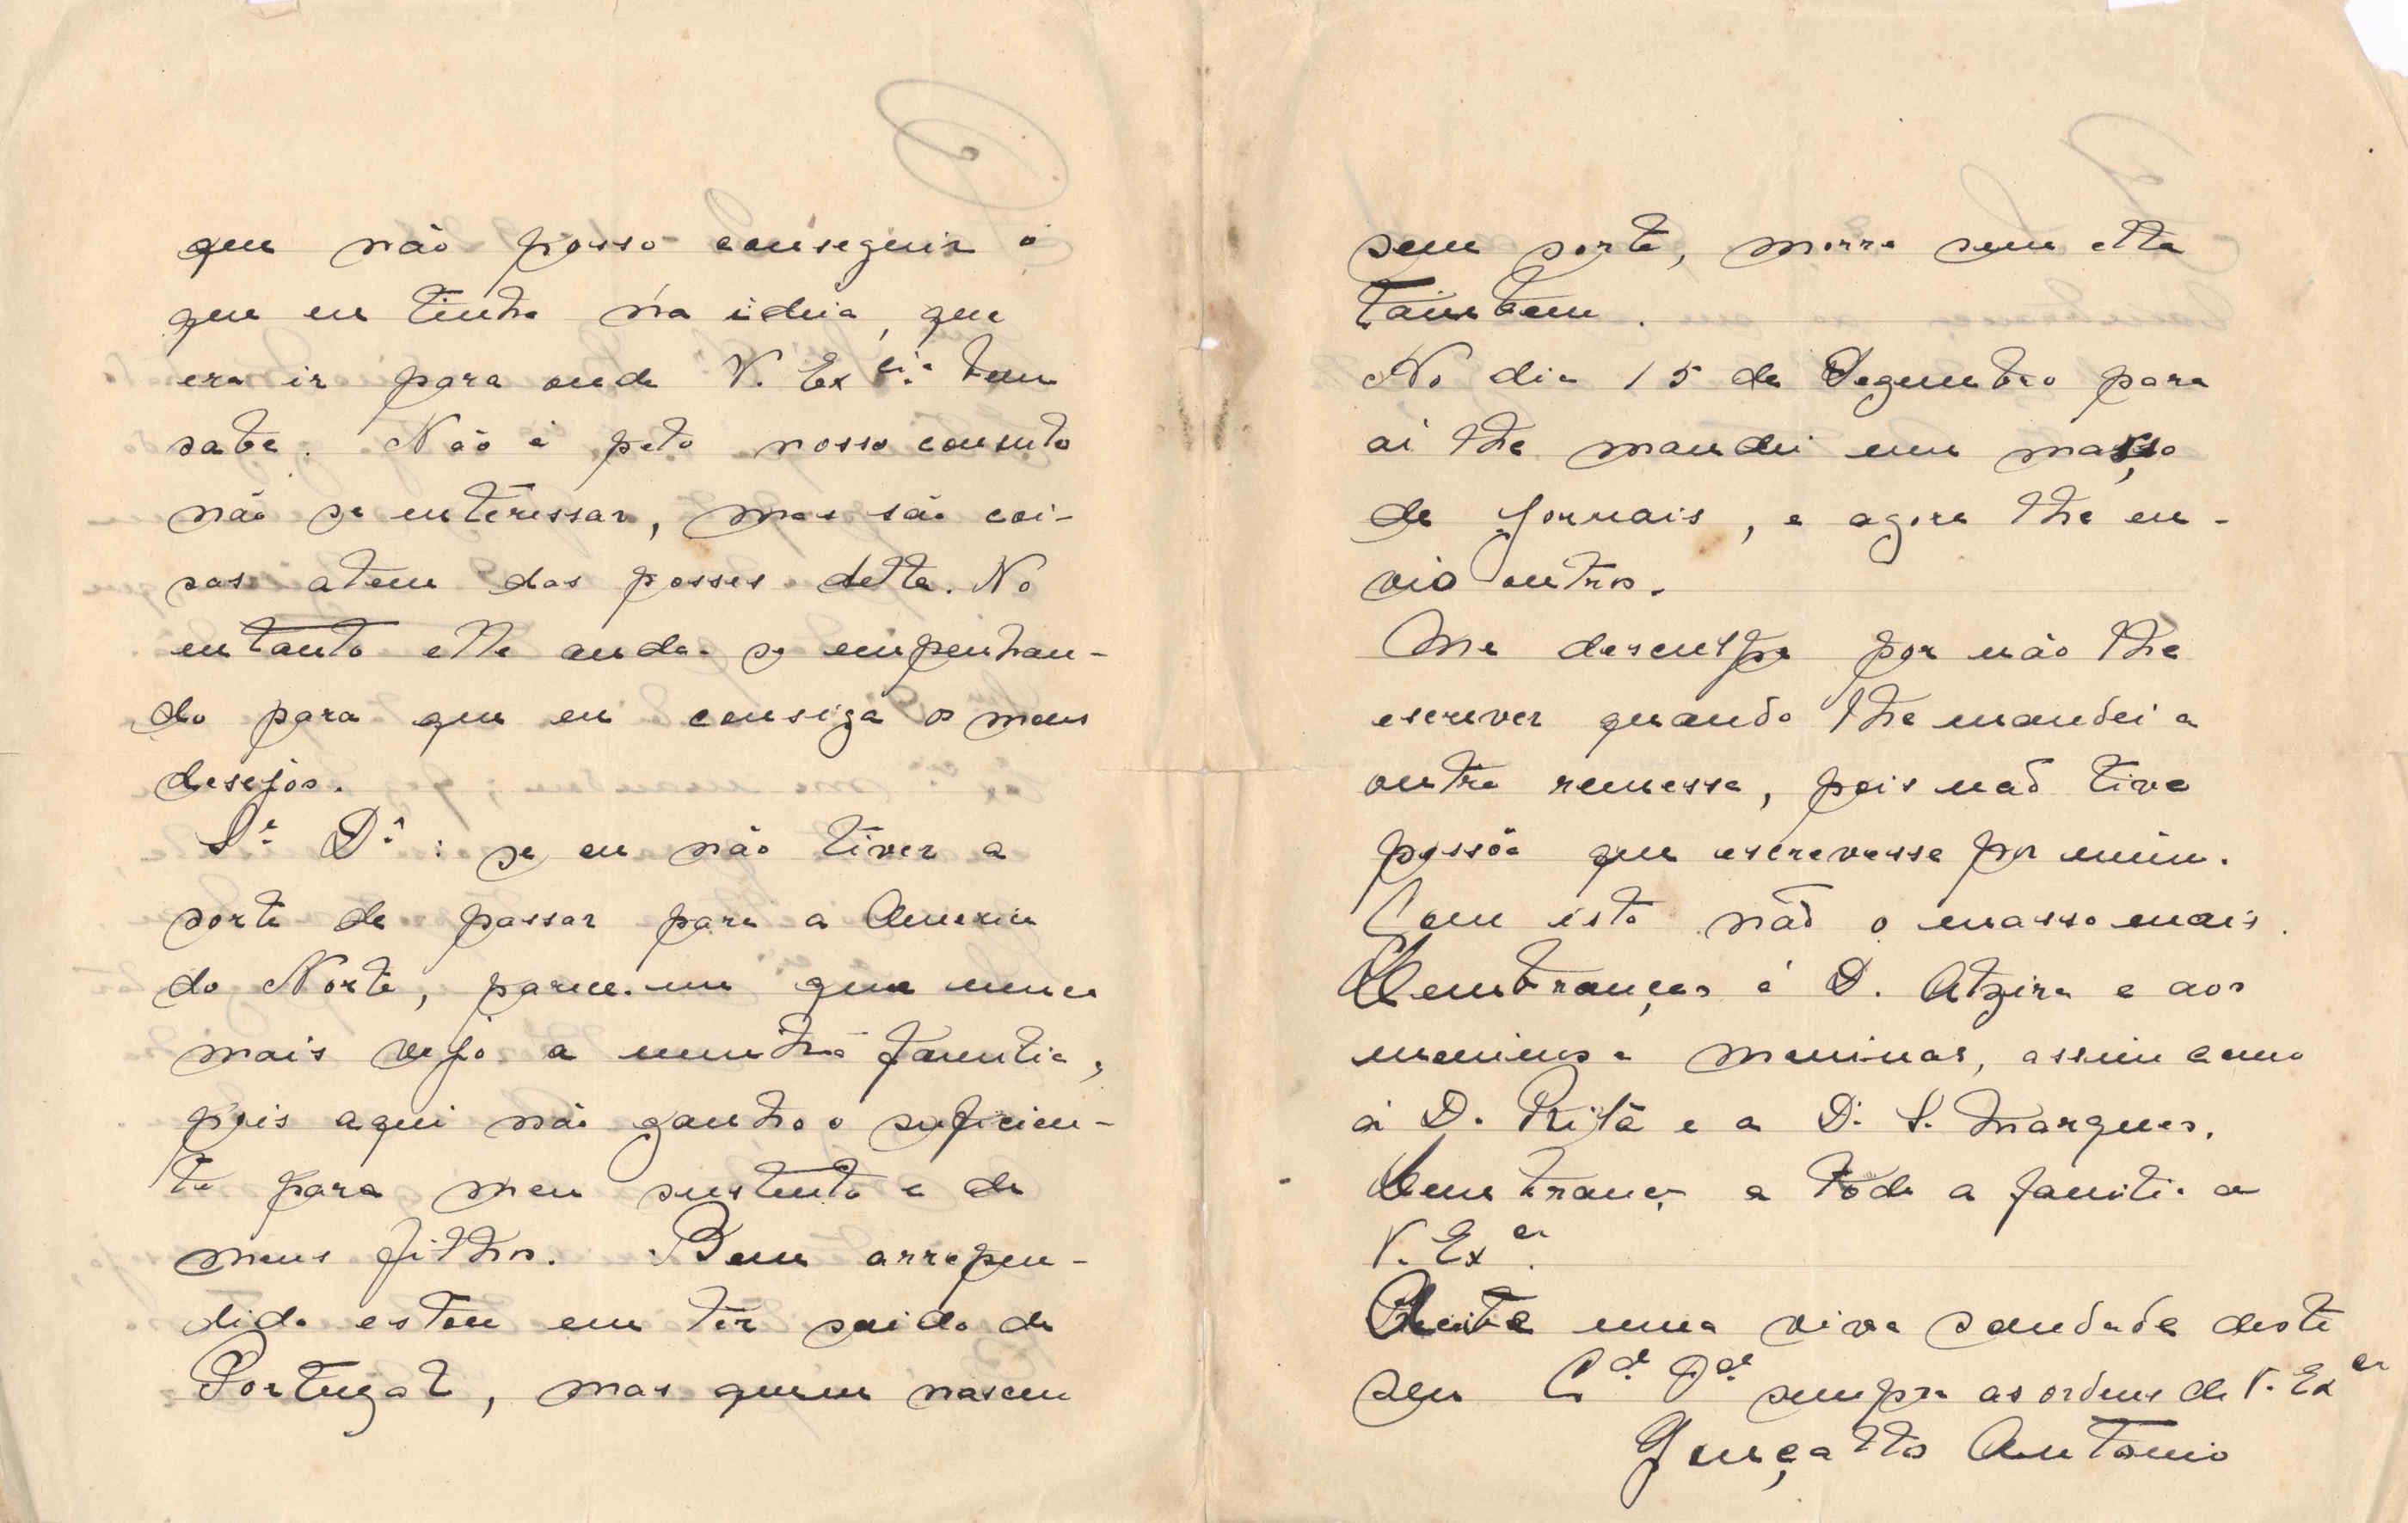 que não posso conseguir o
que eu tinha na ideia, que
era ir para onde V. Ex.cia bem
sabe. Não é pelo nosso consulo
não se enteressar, mas são coi-
sas alem das posses delle. No
entanto elle anda se empenhan-
do para que eu consiga os meus
desejos.
Sr. Dr.: se eu não tiver a
sorte de passar para a America
do Norte, parece-me que nunca
mais vejo a minha familia,
pois aqui não ganho o suficien-
te para meu sustento e de
meus filhos. Bem arrepen-
dido estou em ter saido de
Portugal, mas quem nasceu
sem sorte, morre sem ella
tambem.
No dia 15 de Dezembro para
ai lhe mandei um masso
de Jornais, e agora lhe en-
vio outros.
Me desculpe por não lhe
escrever quando lhe mandei a
outra remessa, pois não tive
pessôa que escrevesse por mim.
Com isto não o masso mais.
Lembranças á D. Alzira e aos
meninos e meninas, assim como
á D. Rita e a D. S. Marques.
Lembrança a tôda a familia a
V. Ex.cia
Aceite uma viva saudade deste
seu Cdo. Odo. sempre as ordens de V. Excia
Gonçallo Antonio